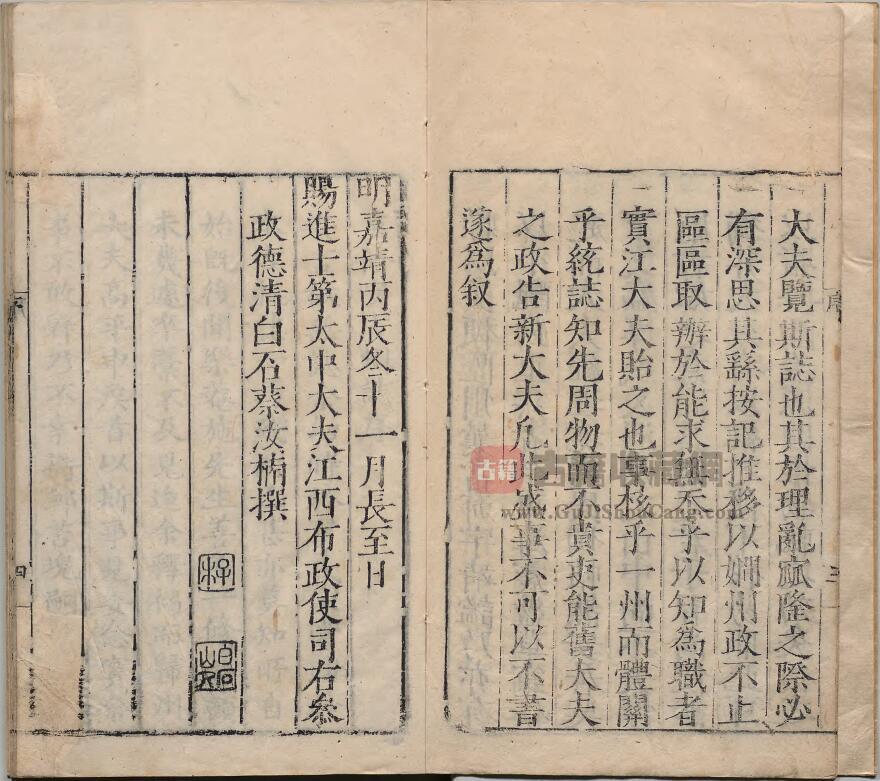 大夫覽斯誌也其於理亂窳隆之際必
有深思其繇按記推移以嫺州政不止
區區取辦於能求無忝乎以知為職者
實江大夫貽之也事核乎一州而體關
乎統誌知先周物而不責吏能舊大夫
之政告新大夫凡此故事不可以不書
遂為叙
明嘉靖丙辰冬十一月長至日
賜進士第太中大夫江西布政使司右叅
政德清白石蔡汝楠撰
序
三
四
古籍
www.GuJiShouCang.com